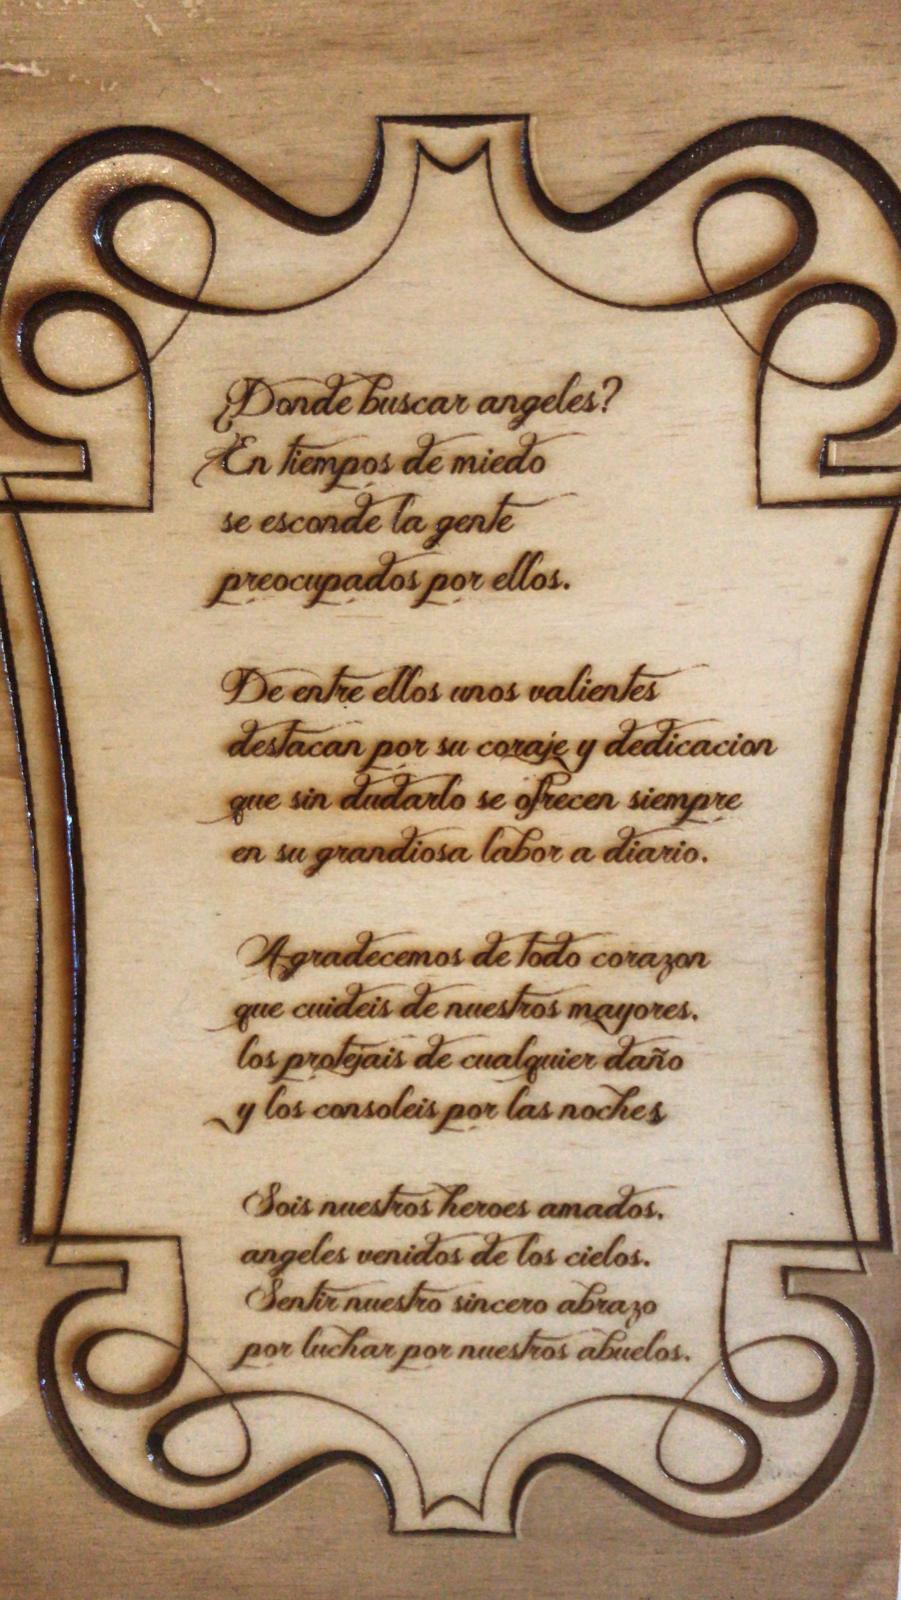 ¿Donde buscar angeles?
En tiempos de miedo
se esconde la gente
preocupados por ellos.
De entre ellos unos valientes
destacan por su coraje y dedicacion
que sin dudarlo se ofrecen siempre
en su grandiosa labor a diario.
Agradecemos de todo corazon
que cuideis de nuestros mayores.
los protejais de cualquier daño
y los consoleis por las noches
Sois nuestros heroes amados.
angeles venidos de los cielos.
Sentir nuestro sincero abrazo
por luchar por nuestros abuelos.